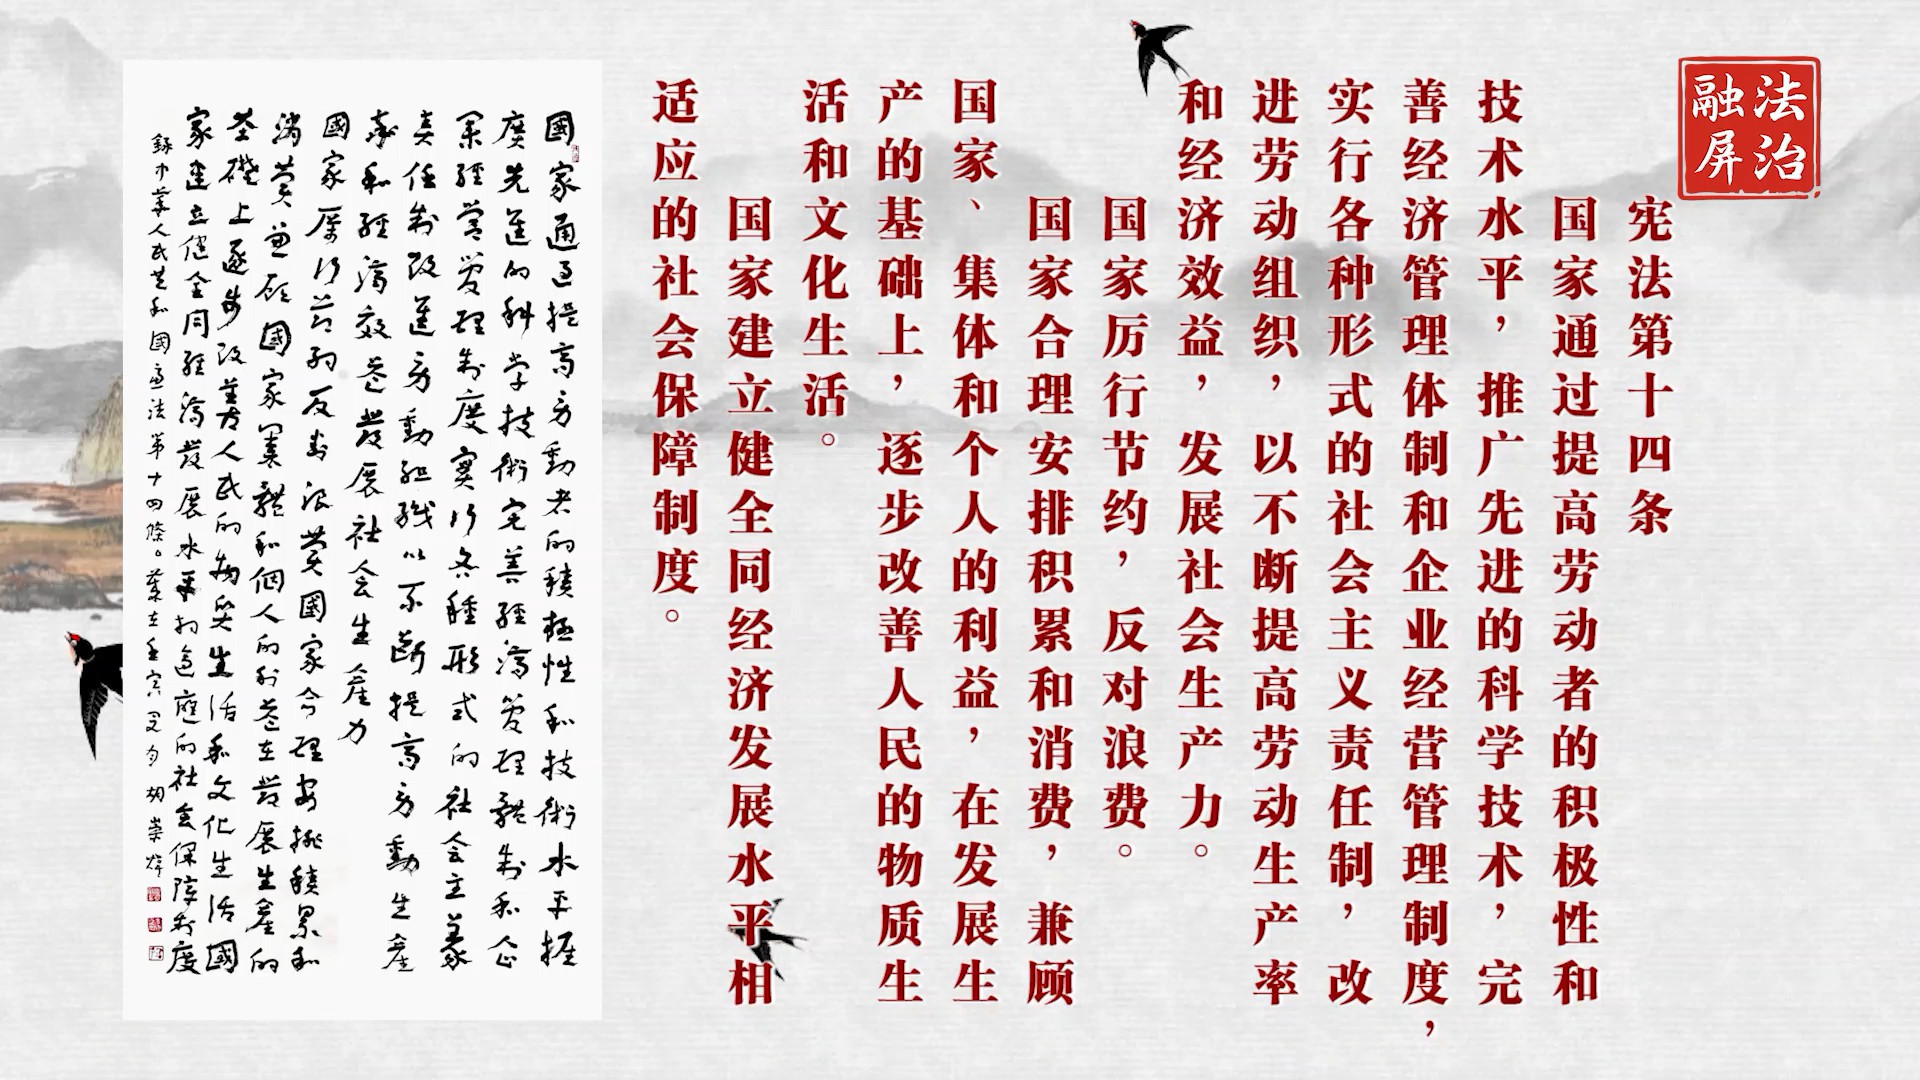 法治
融屏
宪法第十四条
国家通过提高劳动者的积极性和
技术水平，推广先进的科学技术，完
善经济管理体制和企业经营管理制度，
实行各种形式的社会主义责任制，改
进劳动组织，以不断提高劳动生产率
和经济效益，发展社会生产力。
国家厉行节约，反对浪费。
国家合理安排积累和消费，兼顾
国家、集体和个人的利益，在发展生
产的基础上，逐步改善人民的物质生
活和文化生活。
国家建立健全同经济发展水平相
适应的社会保障制度。
國家通過提高勞動者的積極性和技術水平推
廣先進的科学技術完善經濟管理體制和企
業經營管理制度實行各種形式的社会主義
責任制改進勞動組織以不斷提高勞動生產
率和經濟效益發展社会生產力
國家厲行節約反對浪費國家合理安排積累和
消費兼顧國家集體和個人的利益在發展生產的
基礎上逐步改善人民的物質生活和文化生活國
家建立健全同經濟發展水平相適應的社会保障制度
錄中華人民共和國憲法第十四條。歲在壬寅夏月胡崇煒